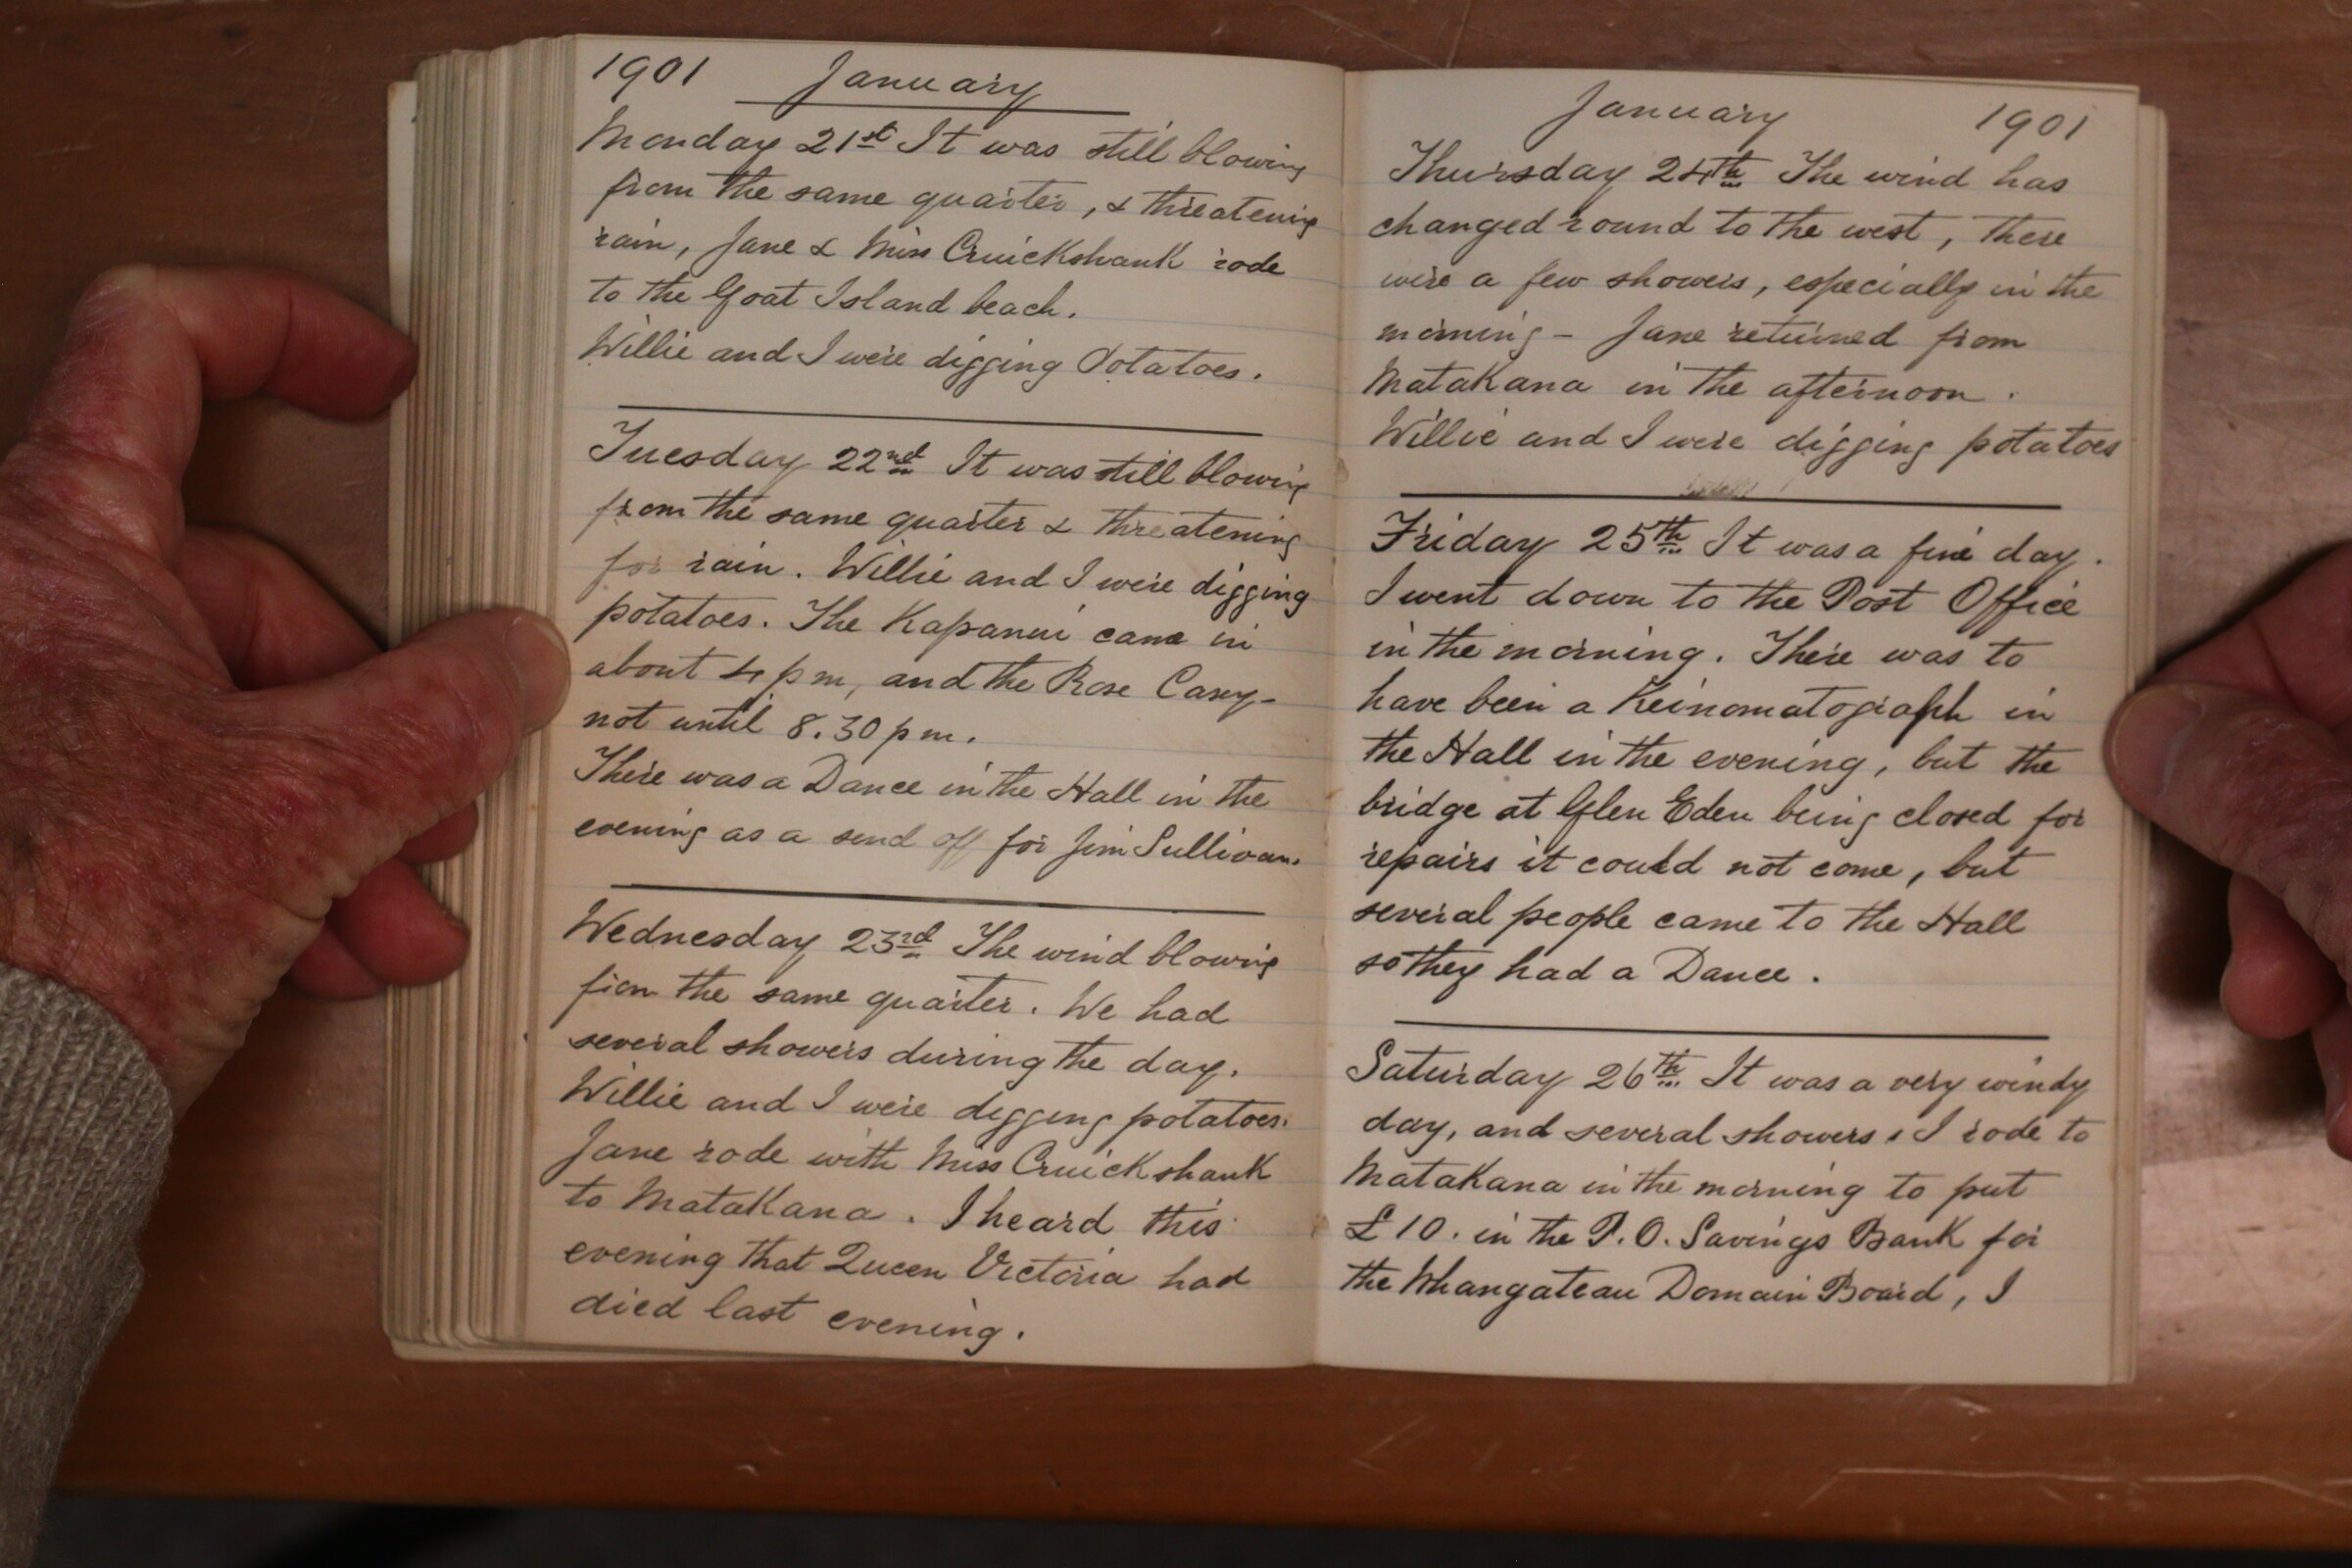 1901 January
Monday 21st It was still blowing
from the same quarter, & threatening
rain, Jane & Miss Cruickshank rode
to the Goat Island beach.
Willie and I were digging Potatoes.
Tuesday 22nd It was still blowing
from the same quarter & threatening
for rain. Willie and I were digging
potatoes. The Kapanui came in
about 4 pm, and the Rose Casey-
not until 8.30 pm.
There was a Dance in the Hall in the
evening as a send off for Jim Sullivan.
Wednesday 23rd The wind blowing
from the same quarter. We had
several showers during the day.
Willie and I were digging potatoes.
Jane rode with Miss Cruickshank
to Matakana. I heard this
evening that Queen Victoria had
died last evening.
January 1901
Thursday 24th The wind has
changed round to the west, there
were a few showers, especially in the
morning - Jane returned from
Matakana in the afternoon.
Willie and I were digging potatoes
Friday 25th It was a fine day.
I went down to the Post Office
in the morning. There was to
have been a Keinomatograph in
the Hall in the evening, but the
bridge at Glen Eden being closed for
repairs it could not come, but
several people came to the Hall
so they had a Dance.
Saturday 26th It was a very windy
day, and several showers, I rode to
Matakana in the morning to put
£10. in the P.O. Savings Bank for
the Whangateau Domain Board, I